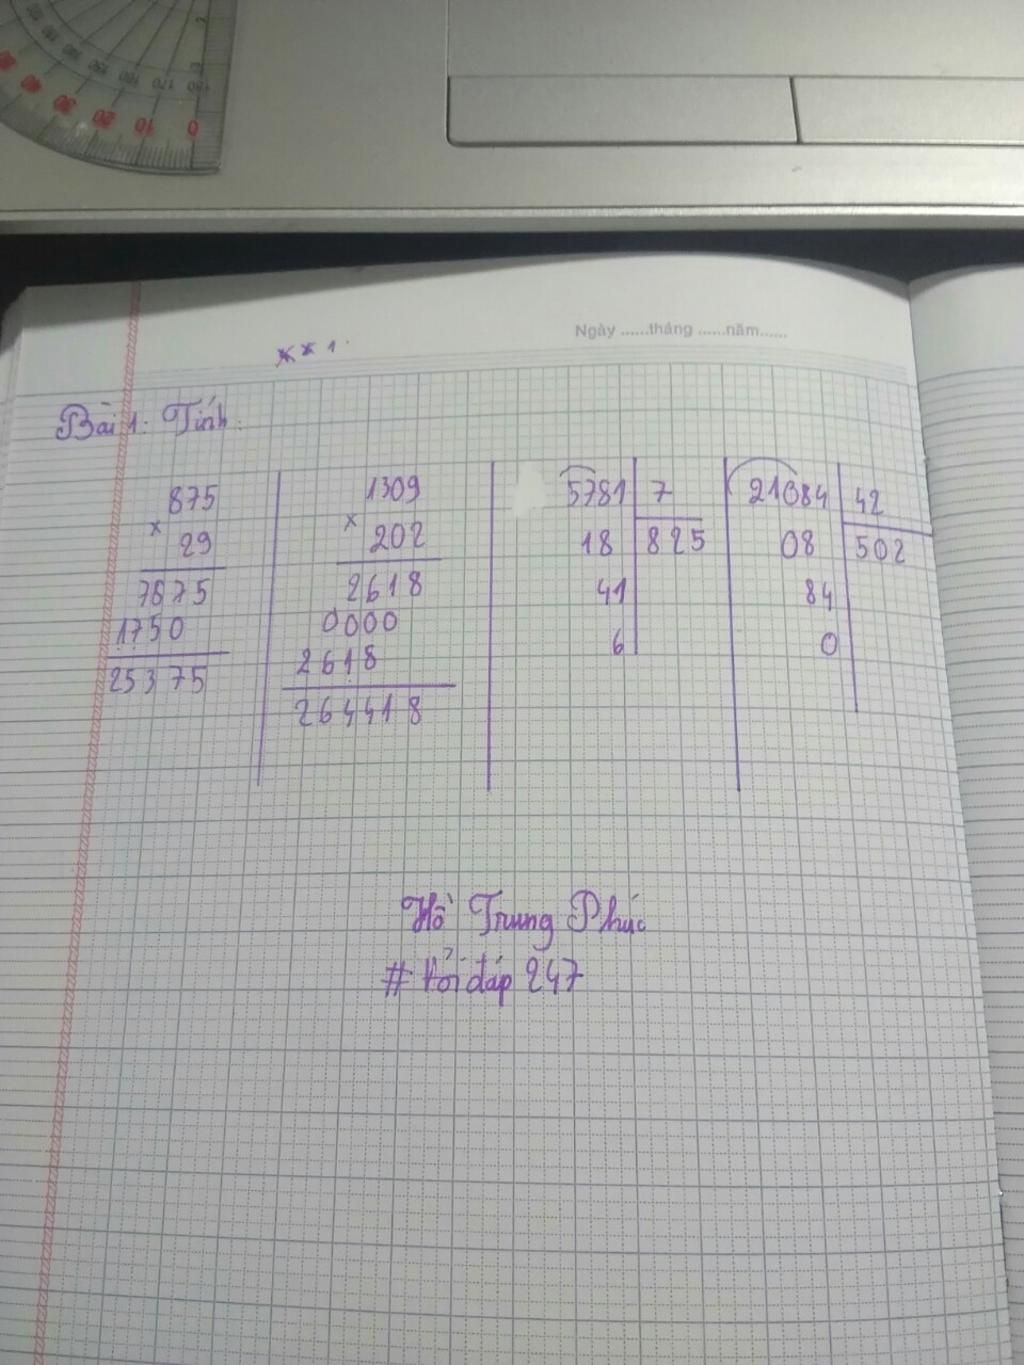 Ngày ......tháng ......năm......
1
Bài 1: Tính:
875
×
29
7875
1750
25375
1309
×
202
2618
0000
2618
264418
5781 7
18 825
41
6
21084 42
08 502
84
0
Hồ Trung Phúc
# Hỏi đáp 247